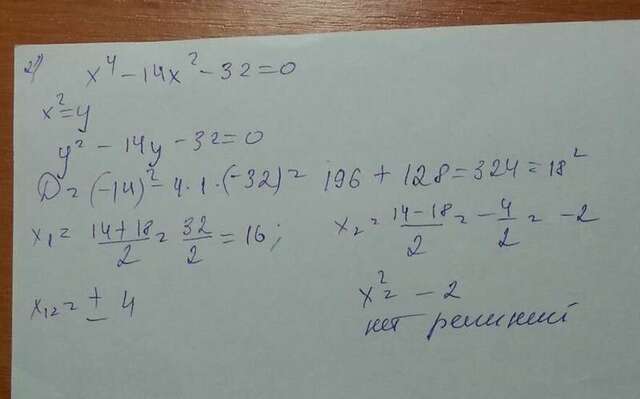 2) x⁴ - 14x² - 32 = 0
x² = y
y² - 14y - 32 = 0
D = (-14)² - 4·1·(-32) = 196 + 128 = 324 = 18²
x₁ = (14+18)/2 = 32/2 = 16; x₂ = (14-18)/2 = -4/2 = -2
x₁₂ = ± 4 x² = -2
нет решений